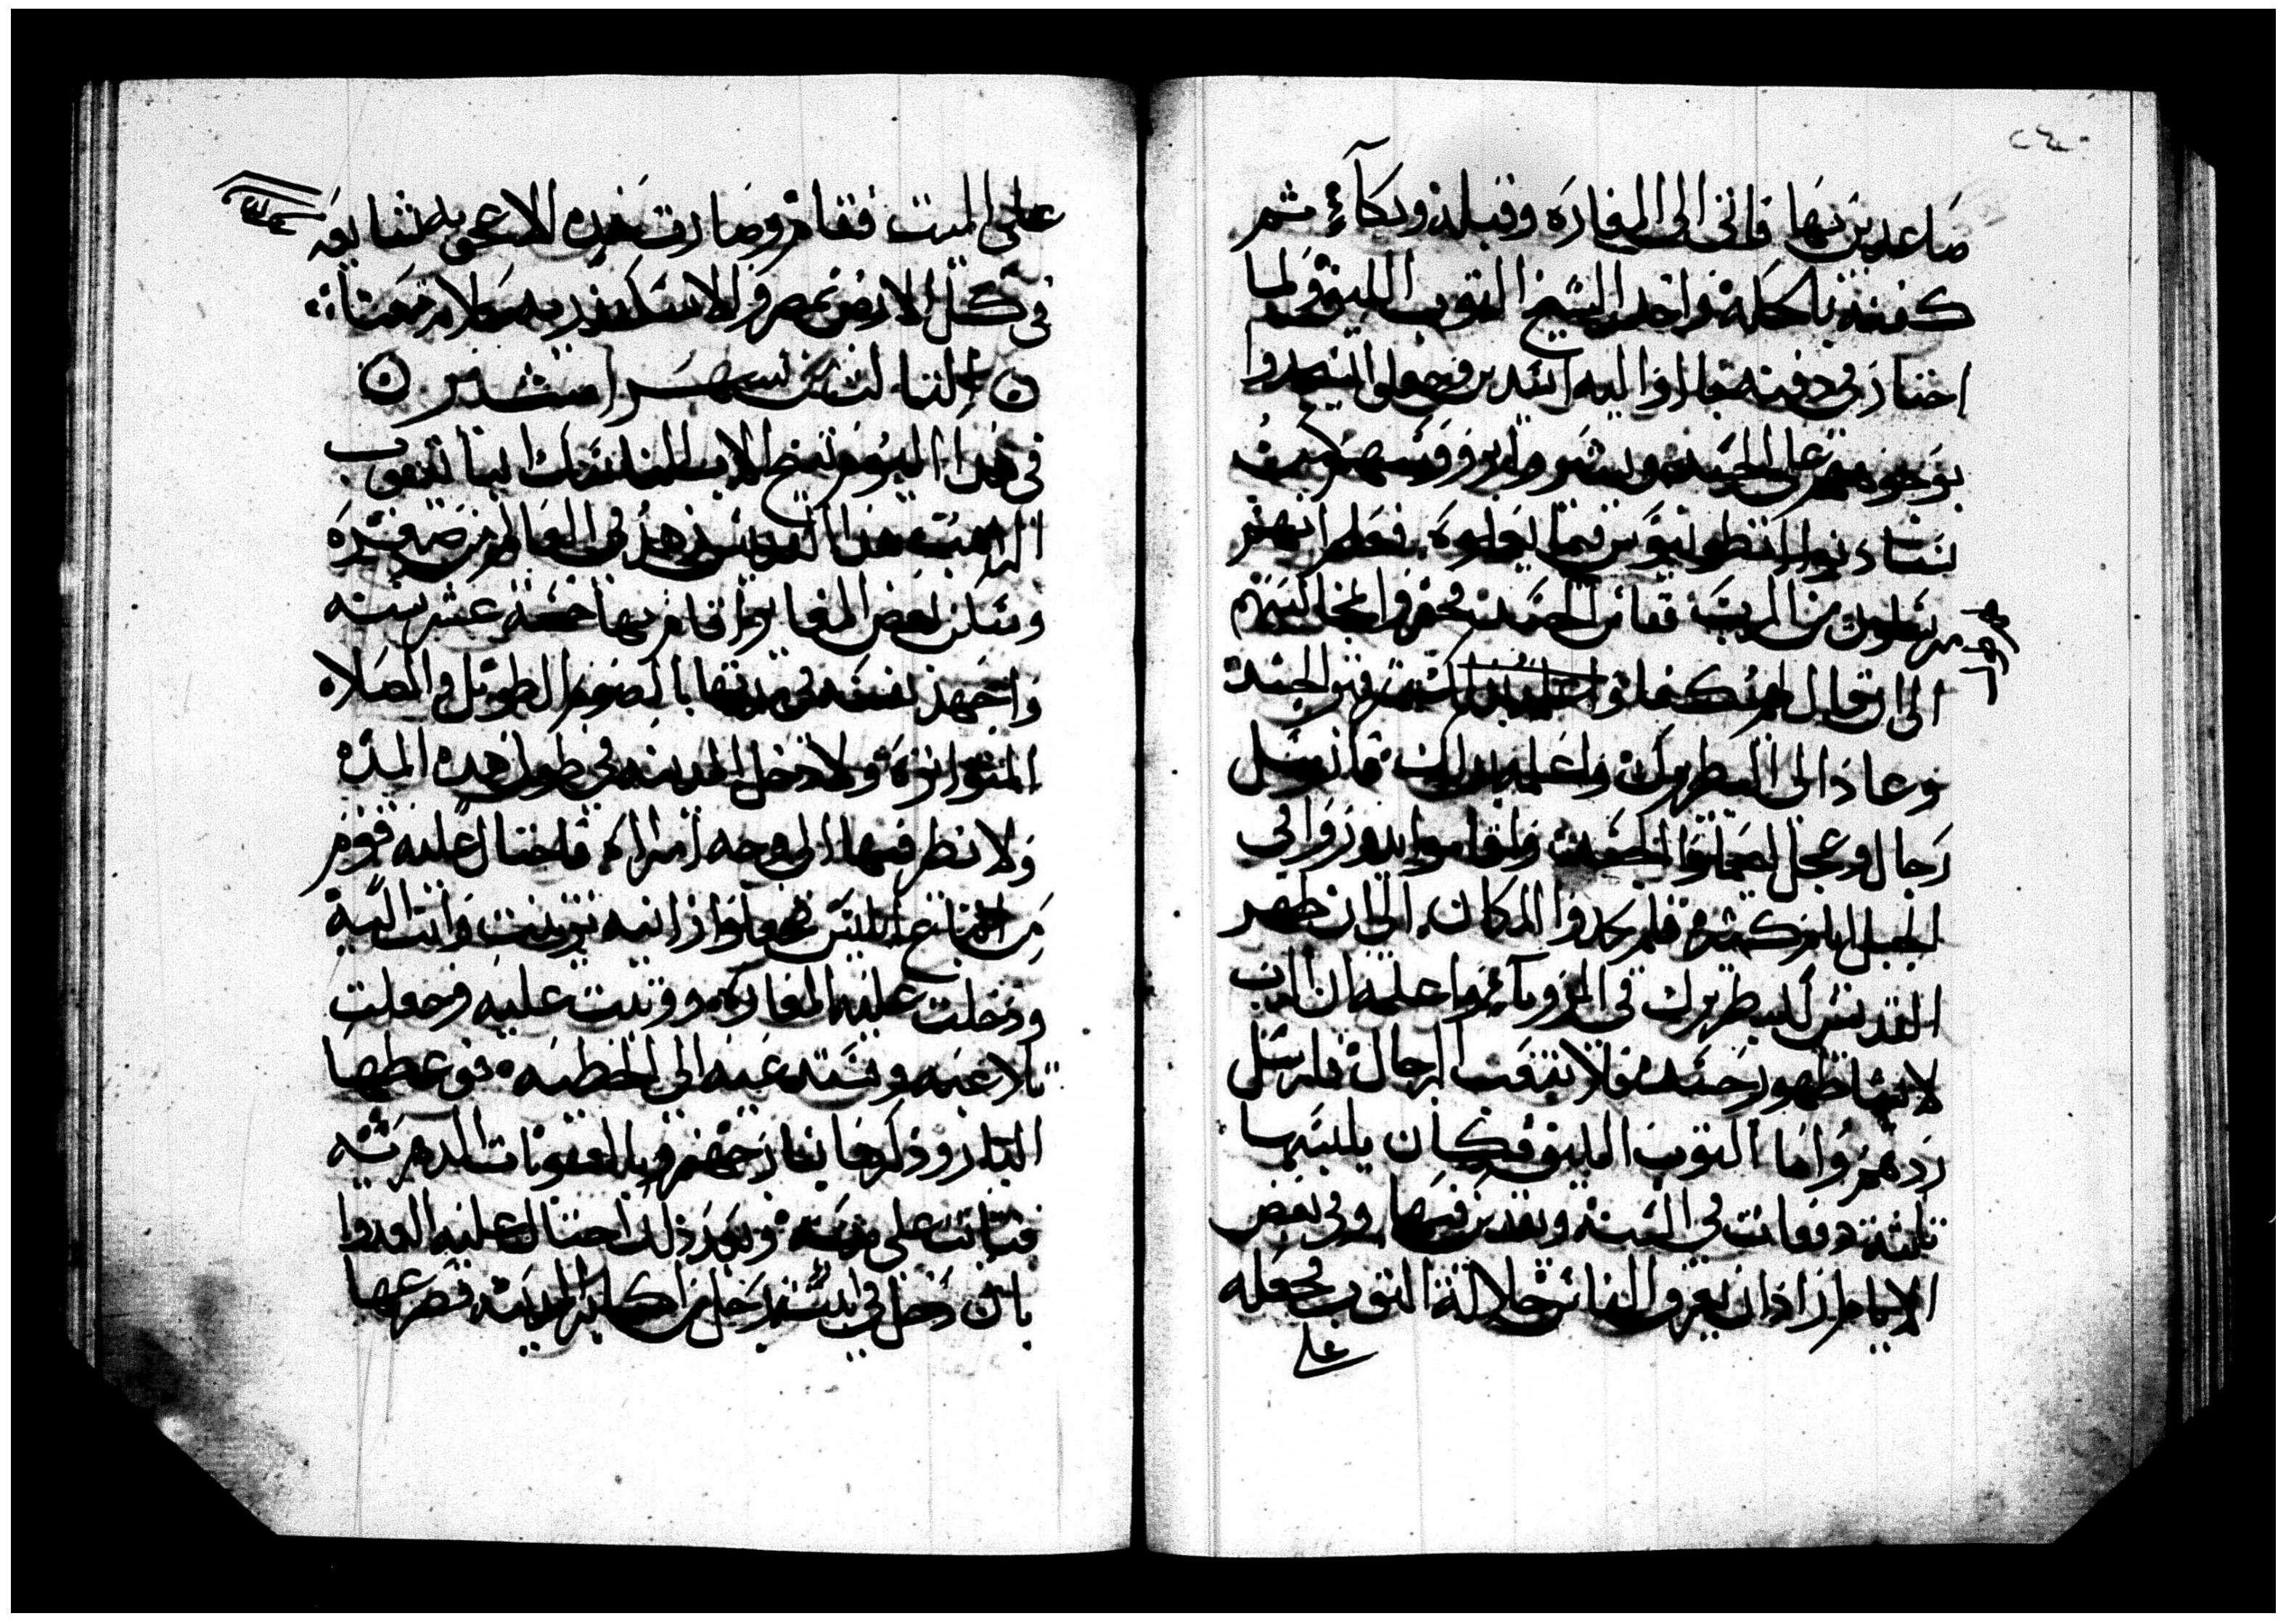 صاعدين بها فاتي الي المغاره وقبله وبكاء ثم
كفنه بالحله واخد الشيخ الثوب الليف ولما
احتار في دفنه جاوا اليه اسدين وجعلوا يسجدوا
بوجوههم علي الجسد
يستادنوا انطونيوس فيما يعملوه فعلم انهم
مرسلون من الرب فقاس الجسد فحفروا بمخاليبهم
الي ان قال لهم كفا الجسد
وعاد الي البطريرك واعلمه بدلك فارسل
رجال وعجل ليحملوا الجسد واقاموا يدوروا في
الجبل ايام كتيره فلم يجدوا المكان الي ان ظهر
القديس للبطريرك في الرويا واعلمه ان الرب
لا يشا ظهور جسده فلا تتعب الرجال فارسل
ردهم واما الثوب الليف فكان يلبسها
تلته دفعات في السنه ويقدس فيها وفي بعض
الايام اراد ان يعرف الناس جلالة الثوب فجعله
علي
علي الميت فقام وصارت هده الاعجوبه شايعه
في كل الارض مصر والاسكندريه صلاته معنا
التالت من شهر امشير
في هدا اليوم تنيح الاب الناسك انبا يعقوب
الراهب هدا القديس زهد في العالم من صغره
وسكن بعض المغاير واقام بها خمسة عشر سنه
واجهد نفسه فيها بالصوم الطويل والصلاه
المتواتره ولا دخل المدينه في طول هده المده
ولا نظر فيها الي وجه امراه فاحتال عليه قوم
من اتباع ابليس فجعلوا زانيه تزينت واتت اليه
ودخلت عليه المغاره ووتبت عليه وجعلت
تلاعبه وتستدعيه الي الخطيه فوعظها
البار وذكرها بنار جهنم وبالعقوبات الدهريه
فتابت علي يديه وبعد ذلك احتال عليه العدوا
بان دخل في ابنة رجل من اكابر المدينه فصرعها